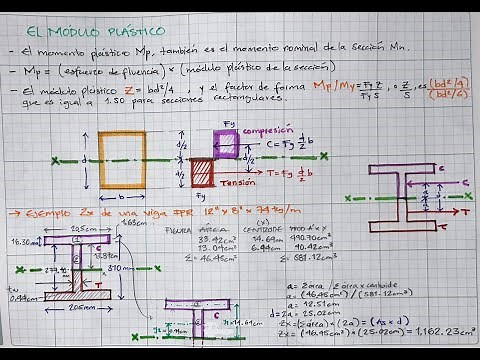 EL MÓDULO PLÁSTICO
- El momento plástico Mp, también es el momento nominal de la sección Mn.
- Mp = (esfuerzo de fluencia) x (módulo plástico de la sección)
- El módulo plástico Z = bd²/4 , y el factor de forma Mp/My = FyZ/FyS , o Z/S , es (bd²/4)/(bd²/6)
que es igual a 1.50 para secciones rectangulares.
Fy
compresión
C = Fy d/2 b
d
d/2
d/2
x
x
b
T = Fy d/2 b
Tensión
Fy
→ Ejemplo Zx de una viga IPR 12" x 8" x 74 kg/m
205mm
16.30mm
C
T
310mm
0.94cm
205mm
x
x
FIGURA
ÁREA
CENTROIDE (x)
PROD A x X
1
33.42cm²
14.69cm
490.70cm³
2
13.04cm²
6.94cm
90.42cm³
Σ = 46.45cm²
Σ = 581.12cm³
C
T
x
x
C
a = Σárea / Σárea x centroide
a = (46.45cm²) / (581.12cm³)
a = 12.51cm
d = 2a = 25.02cm
Zx = (Σárea) x (2a) = (As x d)
Zx = (46.45cm²) x (25.02cm) = 1,162.23cm³